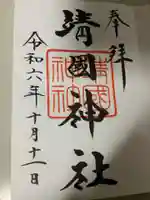 奉拝
靖國神社
令和六年十月十一日
靖國神社